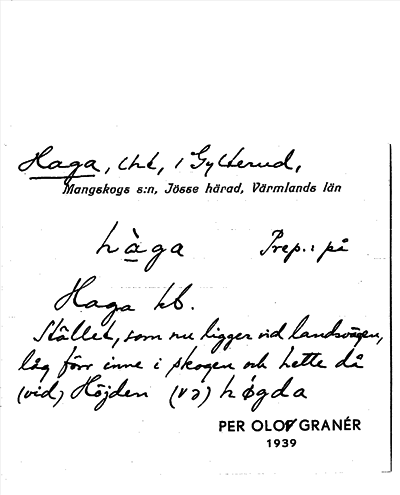 Haga, lht, i Gylterud,
Mangskogs s:n, Jösse härad, Värmlands län
hàga Prep.: på
Haga kb.
Stället, som nu ligger vid landsvägen,
låg förr inne i skogen och hette då
(vid) Höjden (və) hǿgda
PER OLOF GRANÉR
1939